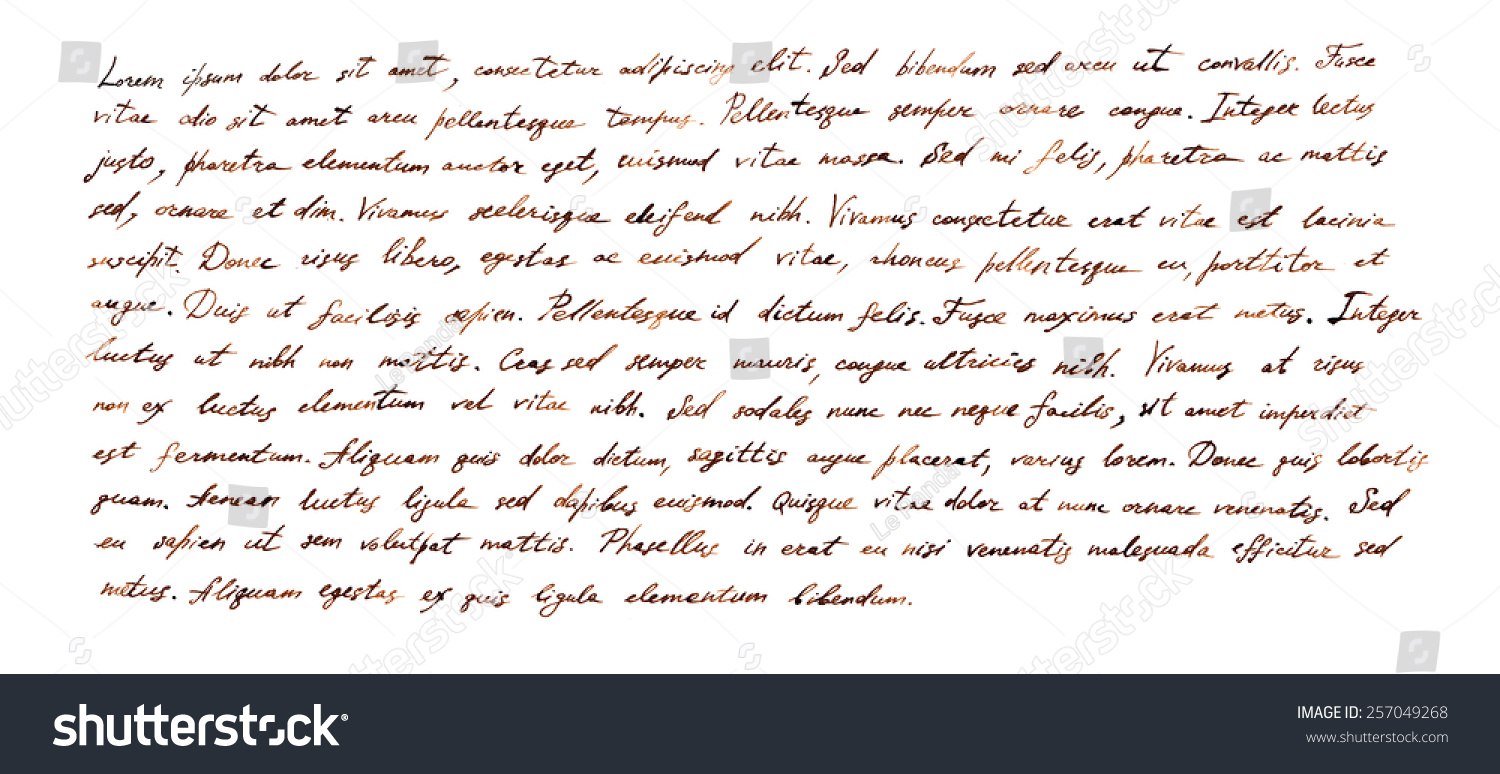 Lorem ipsum dolor sit amet, consectetur adipiscing elit. Sed bibendum sed arcu ut convallis. Fusce
vitae odio sit amet arcu pellentesque tempus. Pellentesque semper ornare congue. Integer lectus
justo, pharetra elementum auctor eget, euismod vitae massa. Sed mi felis, pharetra ac mattis
sed, ornare et dim. Vivamus scelerisque eleifend nibh. Vivamus consectetur erat vitae est lacinia
suscipit. Donec risus libero, egestas ac euismod vitae, rhoncus pellentesque eu, porttitor et
augue. Duis ut facilisis sapien. Pellentesque id dictum felis. Fusce maximus erat metus. Integer
luctus ut nibh non mattis. Cras sed semper mauris, congue ultricies nibh. Vivamus at risus
non ex luctus elementum vel vitae nibh. Sed sodales nunc nec neque facilis, sit amet imperdiet
est fermentum. Aliquam quis dolor dictum, sagittis augue placerat, varius lorem. Donec quis lobortis
quam. Aenean luctus ligula sed dapibus euismod. Quisque vitae dolor at nunc ornare venenatis. Sed
eu sapien ut sem volutpat mattis. Phasellus in erat eu nisi venenatis malesuada efficitur sed
metus. Aliquam egestas ex quis ligula elementum bibendum.
shutterstock
IMAGE ID: 257049268
www.shutterstock.com